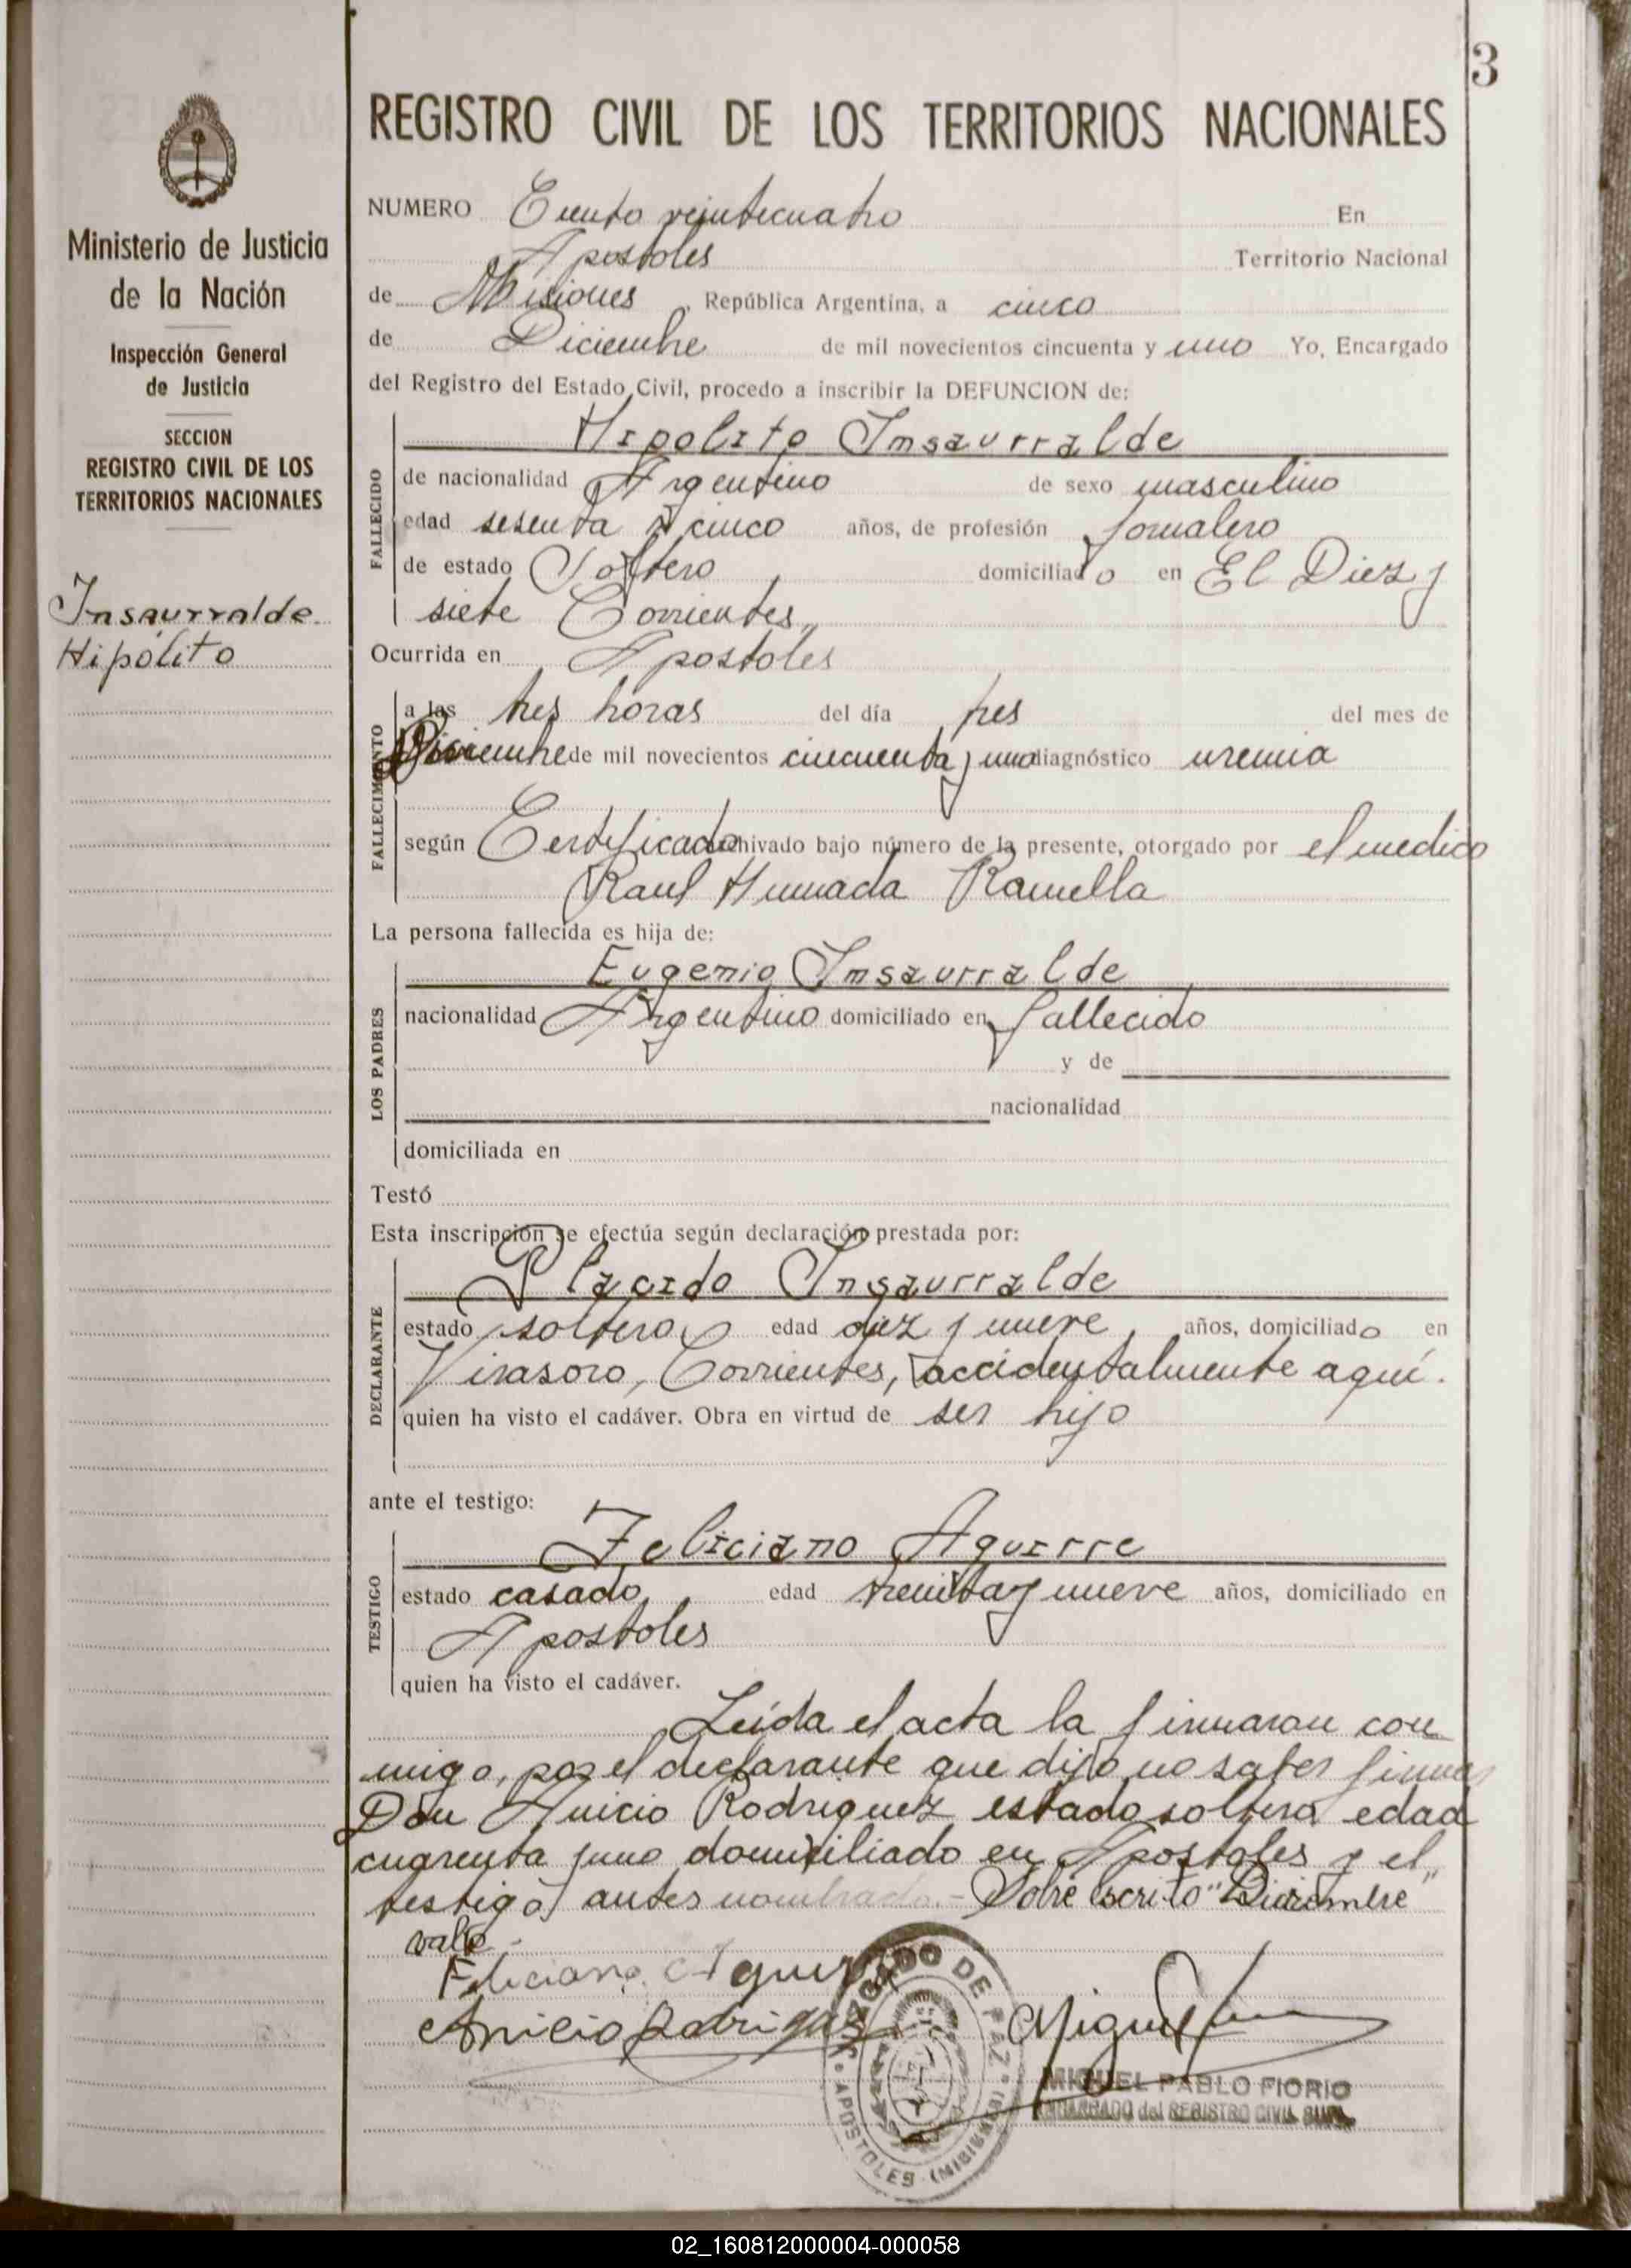 3
REGISTRO CIVIL DE LOS TERRITORIOS NACIONALES
Ministerio de Justicia
de la Nación
Inspección General
de Justicia
SECCION
REGISTRO CIVIL DE LOS
TERRITORIOS NACIONALES
Insaurralde
Hipólito
NUMERO Ciento veintecuatro En
Apostoles Territorio Nacional
de Misiones, República Argentina, a cinco
de Diciembre de mil novecientos cincuenta y uno Yo, Encargado
del Registro del Estado Civil, procedo a inscribir la DEFUNCION de:
FALLECIDO
Hipolito Insaurralde
de nacionalidad Argentino de sexo masculino
edad sesenta y cinco años, de profesión jornalero
de estado Soltero, domiciliado en El Diez y
siete Corrientes,
Ocurrida en Apostoles
FALLECIMIENTO
a las tres horas del día tres del mes de
Diciembre de mil novecientos cincuenta y uno diagnóstico uremia
según Certificado archivado bajo número de la presente, otorgado por el medico
Raul Humada Ramella
La persona fallecida es hija de:
LOS PADRES
Eugenio Insaurralde
nacionalidad Argentino domiciliado en fallecido
y de
nacionalidad
domiciliada en
Testó
Esta inscripción se efectúa según declaración prestada por:
DECLARANTE
Placido Insaurralde
estado soltero edad diez y nueve, años, domiciliado en
Virasoro, Corrientes, accidentalmente aquí.
quien ha visto el cadáver. Obra en virtud de ser hijo
ante el testigo:
TESTIGO
Feliciano Aguirre
estado casado, edad treinta y nueve años, domiciliado en
Apostoles
quien ha visto el cadáver.
Leída el acta la firmaron con
migo, por el declarante que dijo no saber firmar
Don Anicio Rodriguez estado soltero edad
cuarenta y uno domiciliado en Apostoles y el
testigo antes nombrado.- Sobre escrito "Diciembre"
vale.-
Feliciano Aguirre
Anicio Rodriguez
Miguel
JUZGADO DE PAZ
APOSTOLES (MISIONES)
MIGUEL PABLO FIORIO
ENCARGADO del REGISTRO CIVIL SUPL.
02_160812000004-000058